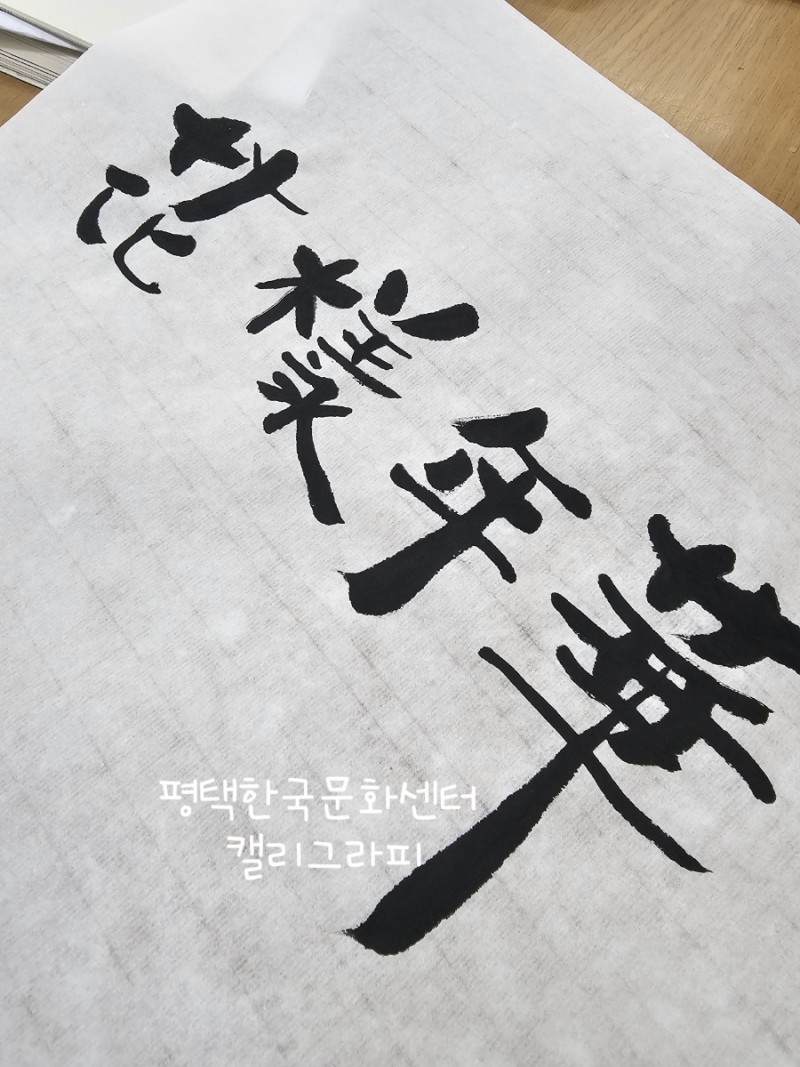 花樣年華
평택한국문화센터
캘리그라피